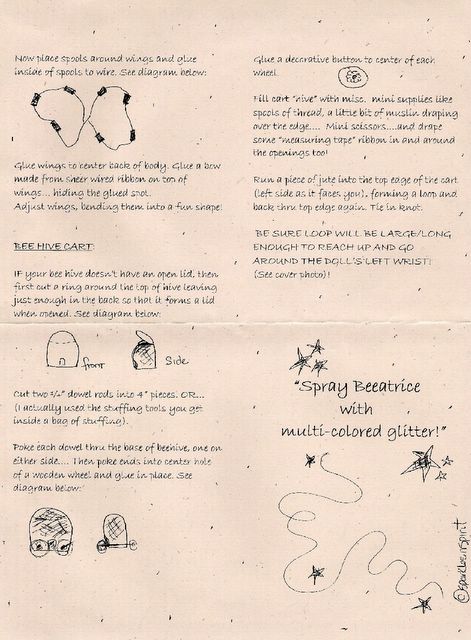 Now place spools around wings and glue
inside of spools to wire. See diagram below:
Glue wings to center back of body. Glue a bow
made from sheer wired ribbon on top of
wings.... hiding the glued spot.
Adjust wings, bending them into a fun shape!
BEE HIVE CART:
IF your bee hive doesn't have an open lid, then
first cut a ring around the top of hive leaving
just enough in the back so that it forms a lid
when opened. See diagram below:
front
Side
Cut two dowel rods into 4" pieces. OR....
(I actually used the stuffing tools you get
inside a bag of stuffing).
Poke each dowel thru the base of beehive, one on
either side.... Then poke ends into center hole
of a wooden wheel and glue in place. See
diagram below:
Glue a decorative button to center of each
wheel.
Fill cart "hive" with misc. mini supplies like
spools of thread, a little bit of muslin draping
over the edge.... Mini scissors.....and drape
some "measuring tape" ribbon in and around
the openings too!
Run a piece of jute into the top edge of the cart
(left side as it faces you), forming a loop and
back thru top edge again. Tie in knot.
BE SURE LOOP WILL BE LARGE/LONG
ENOUGH TO REACH UP AND GO
AROUND THE DOLL'S LEFT WRIST!
(See cover photo)!
"Spray Beeatrice
with
multi-colored glitter!"